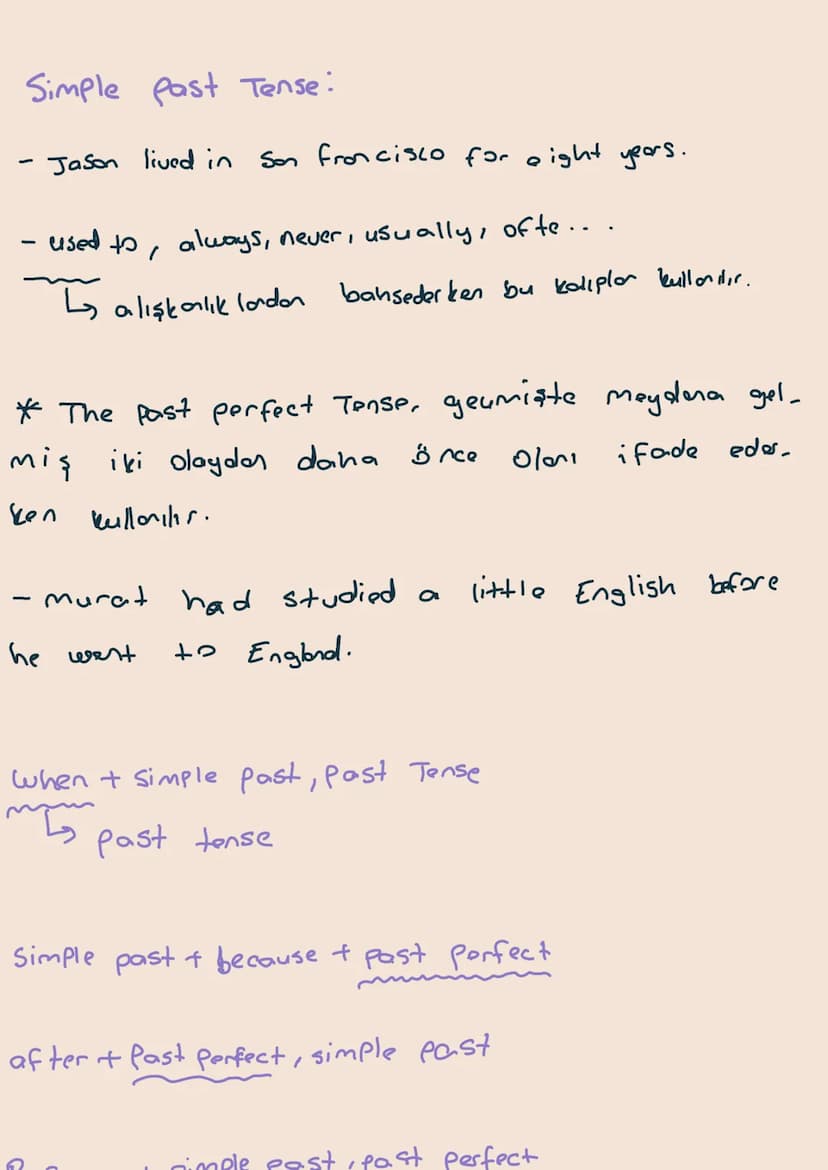 Simple Past Tense:
- Jason lived in San Francisco for eight years.
- used to, always, never, usually, ofte...
↳ alışkanlıklardan bahsederken bu kalıplar kullanılır.
* The past perfect Tense, geçmişte meydana gel-
miş iki olaydan daha önce olanı ifade eder-
ken kullanılır.
- Murat had studied a little English before
he went to England.
When + simple past, past Tense
↳ past tense
Simple past + because + past perfect
after + Past perfect, simple past
simple past, past perfect